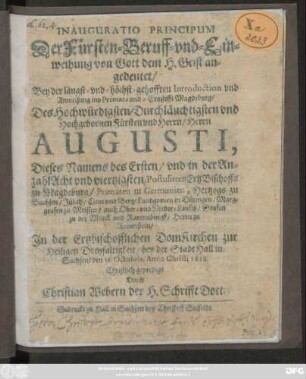 INAUGURATIO PRINCIPUM
Der Fürsten-Beruff-vnd-Ein-
weihung von Gott dem H. Geist an-
gedeutet/
Bey der längst-vnd-höchst-gehofften Introduction vnd
Des Hochwürdigsten/Durchläuchtigsten vnd
Hochgebornen Fürsten vnd Herrn/Herrn
AUGUSTI,
Dieses Namens des Ersten/ vnd in der An-
zahl Acht vnd viertzigsten/ Postulirten Ertz Bischoffs
zu Magdeburg/ Primaten in Germanien, Hertzogs zu
Sachsen/ Jülich/ Cleve vnd Berg/ Landgrafen in Düringen/ Marg-
grafen zu Meissen/ auch Ober-vnd Nieder-Lausitz/ Grafen
zu der Marck vnd Ravensburg/ Herrn zu
Ravenstein/
In der Ertzbischofflichen DomKirchen zur
Heiligen Dreyfaltigkeit bey der Stadt Hall in
Sachsen/ den 18. Octobris, Anno Christi
Christlich gepredigt
Durch
Christian Webern der H. Schrifft Doct.
Gedruckt zu Hall in Sachsen bey Christoff Salfeld.
Xa